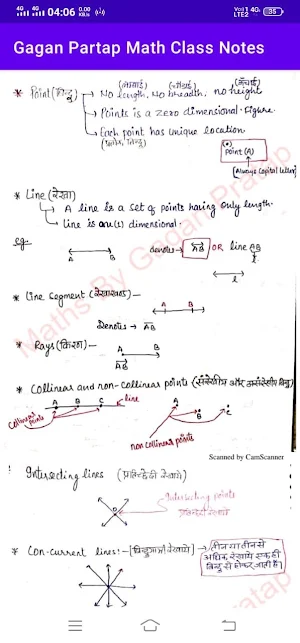 04:06
0.02 KB/s
Vo) 1 4G
LTE2
35
Gagan Partap Math Class Notes
(लम्बाई) (चौड़ाई) (ऊँचाई)
* Point (बिन्दु) → No length, No breadth, no height
→ Points is a zero dimensional figure
→ Each point has unique location
(प्रत्येक बिन्दु)
Point (A)
(Always capital letter)
* Line (रेखा)
→ A line is a set of points having only length.
→ Line is one(1) dimensional.
eg-
A B
denotes → AB OR line AB
l
l
* Line Segment (रेखाखण्ड) —
A B
Denotes → AB
* Rays (किरण) —
A B
AB
* Collinear and non-collinear points (संरेखीय और असंरेखीय बिन्दु)
A B C line
Collinear points
A B C
non collinear points
Scanned by CamScanner
! Intersecting lines (प्रतिच्छेदी रेखायें)
O
Intersecting points
* Con-current lines: - [बिन्दुगामी रेखायें] →
तीन या तीन से
अधिक रेखायें एक ही
बिन्दु से होकर जाती है।
Maths By Gagan Pratap